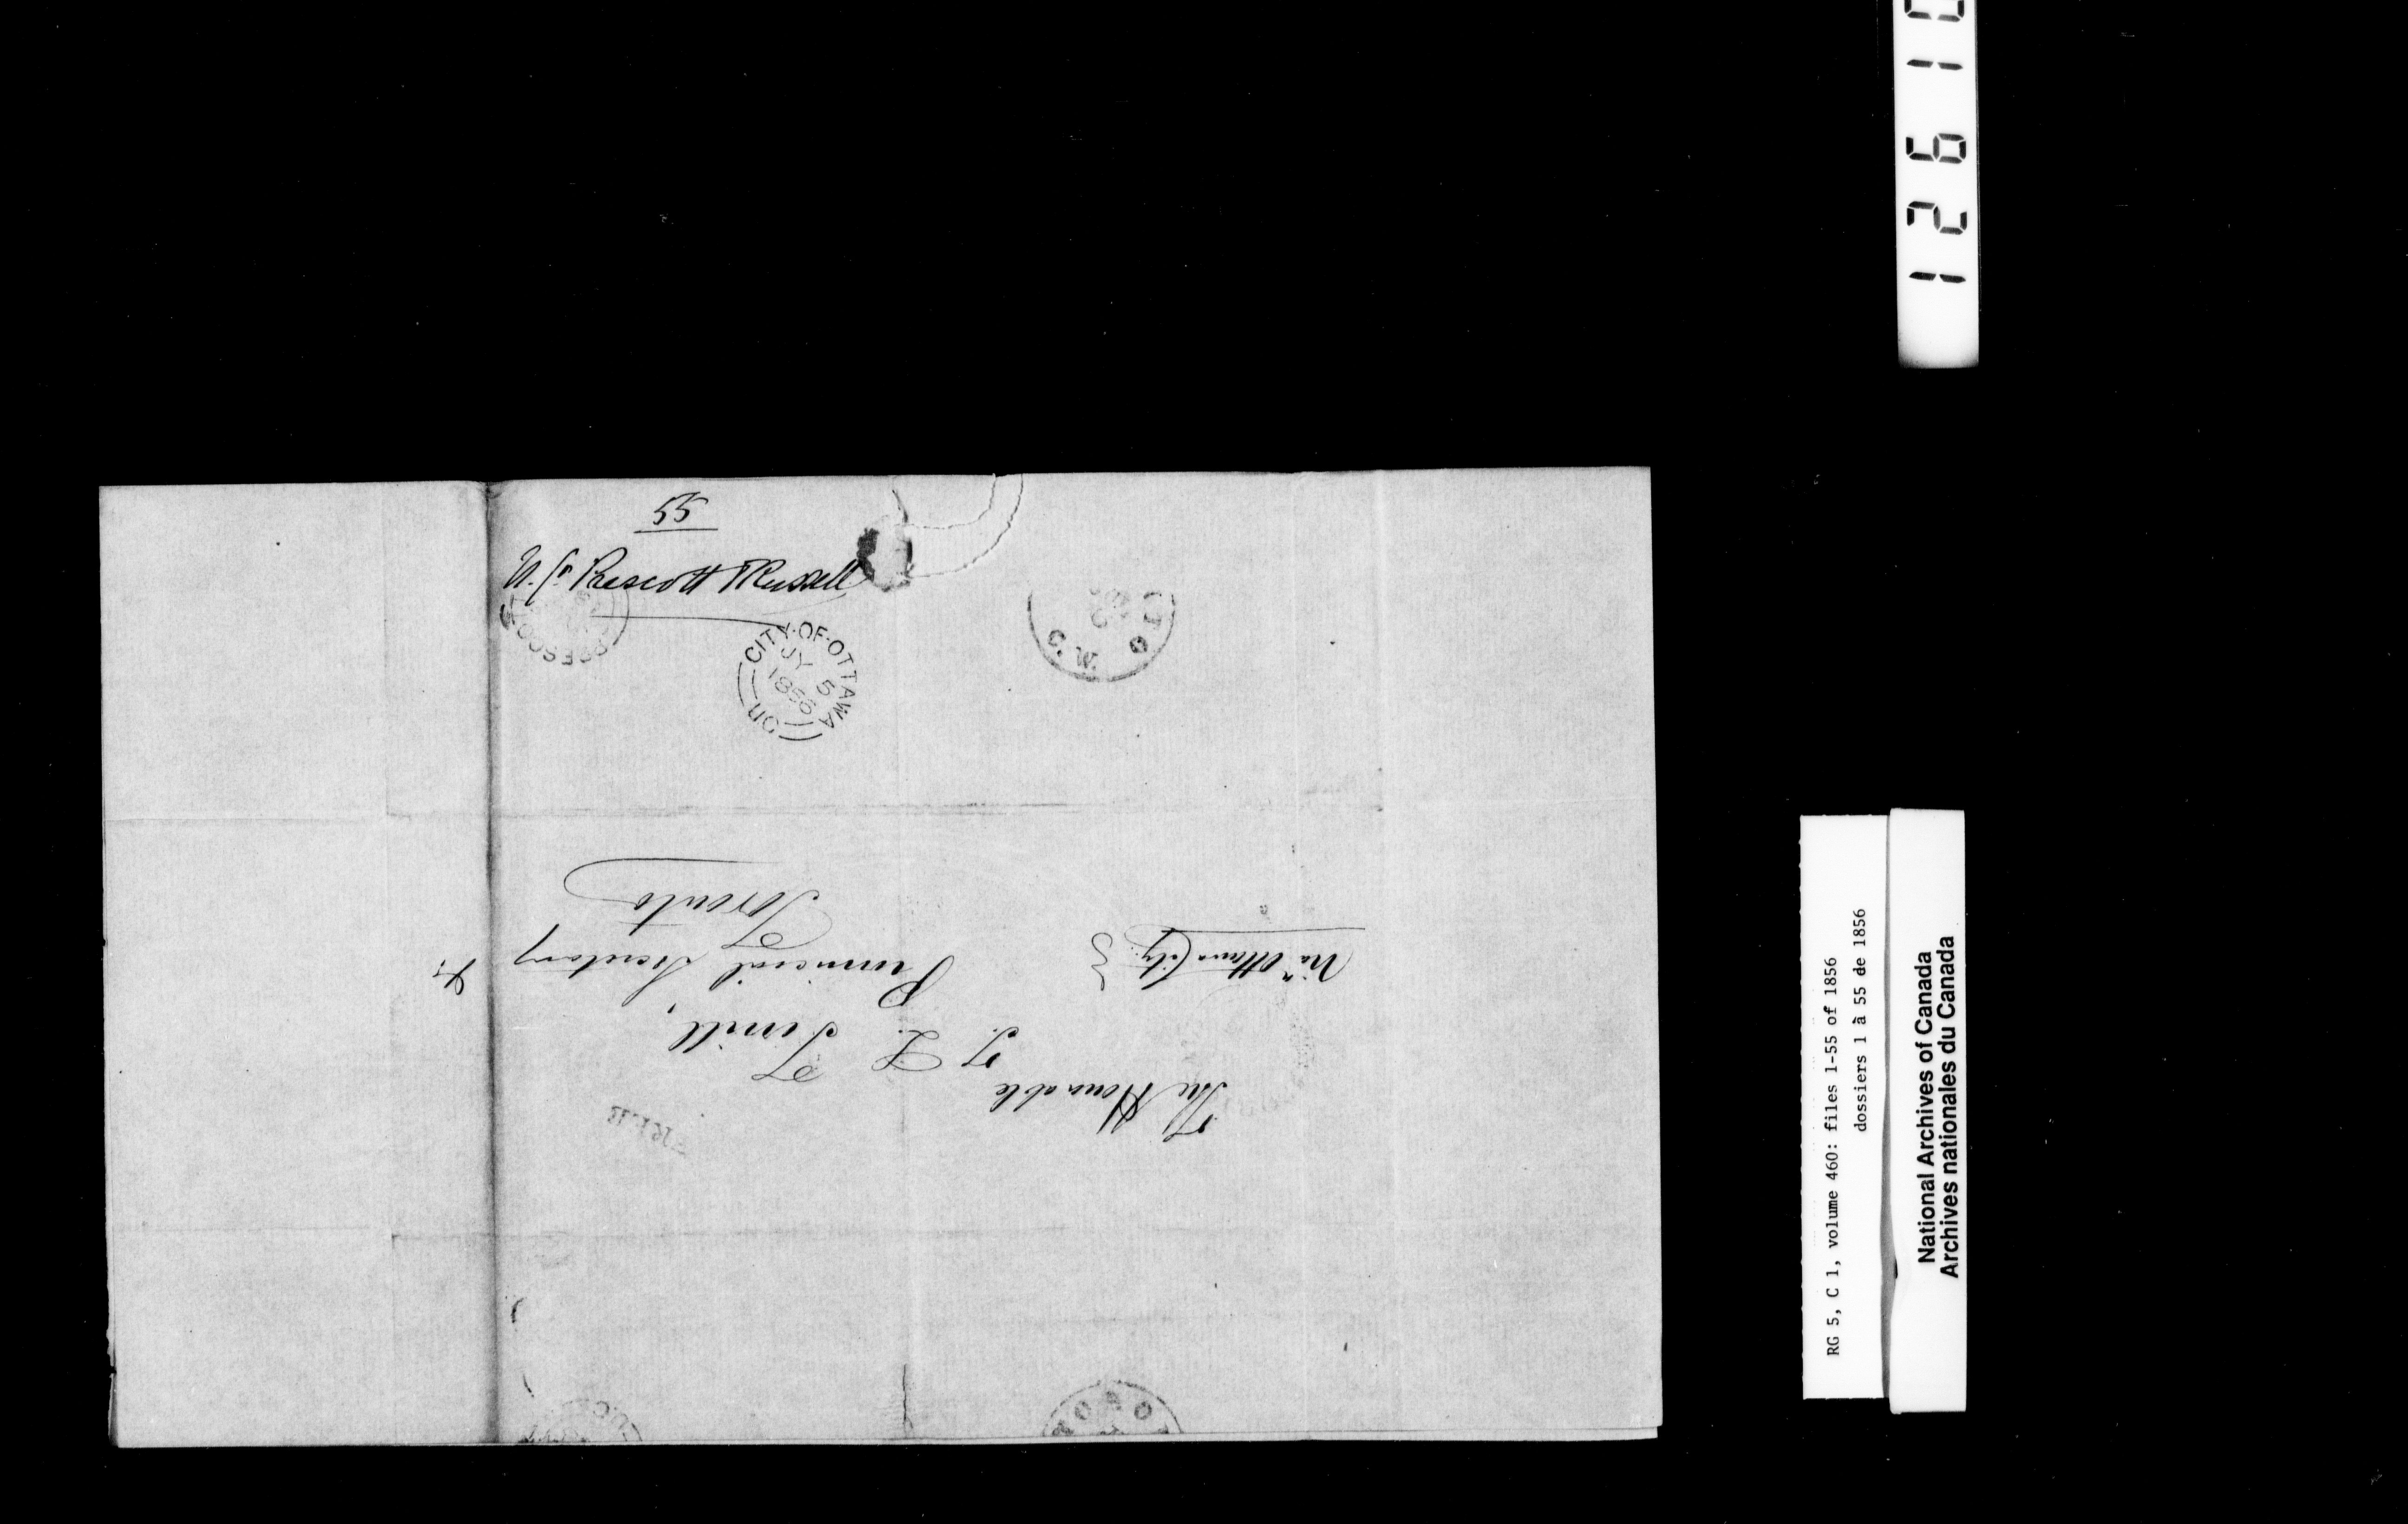 55
U. Cs Prescott & Russell
CITY·OF·OTTAWA
JY 5
1856
PRESCOTT
C.W.
The Honorable
T. L. Terrill,
Provincial Secretary
Toronto
Via Ottawa City
RG 5, C 1, volume 460: files 1-55 of 1856
dossiers 1 à 55 de 1856
National Archives of Canada
Archives nationales du Canada